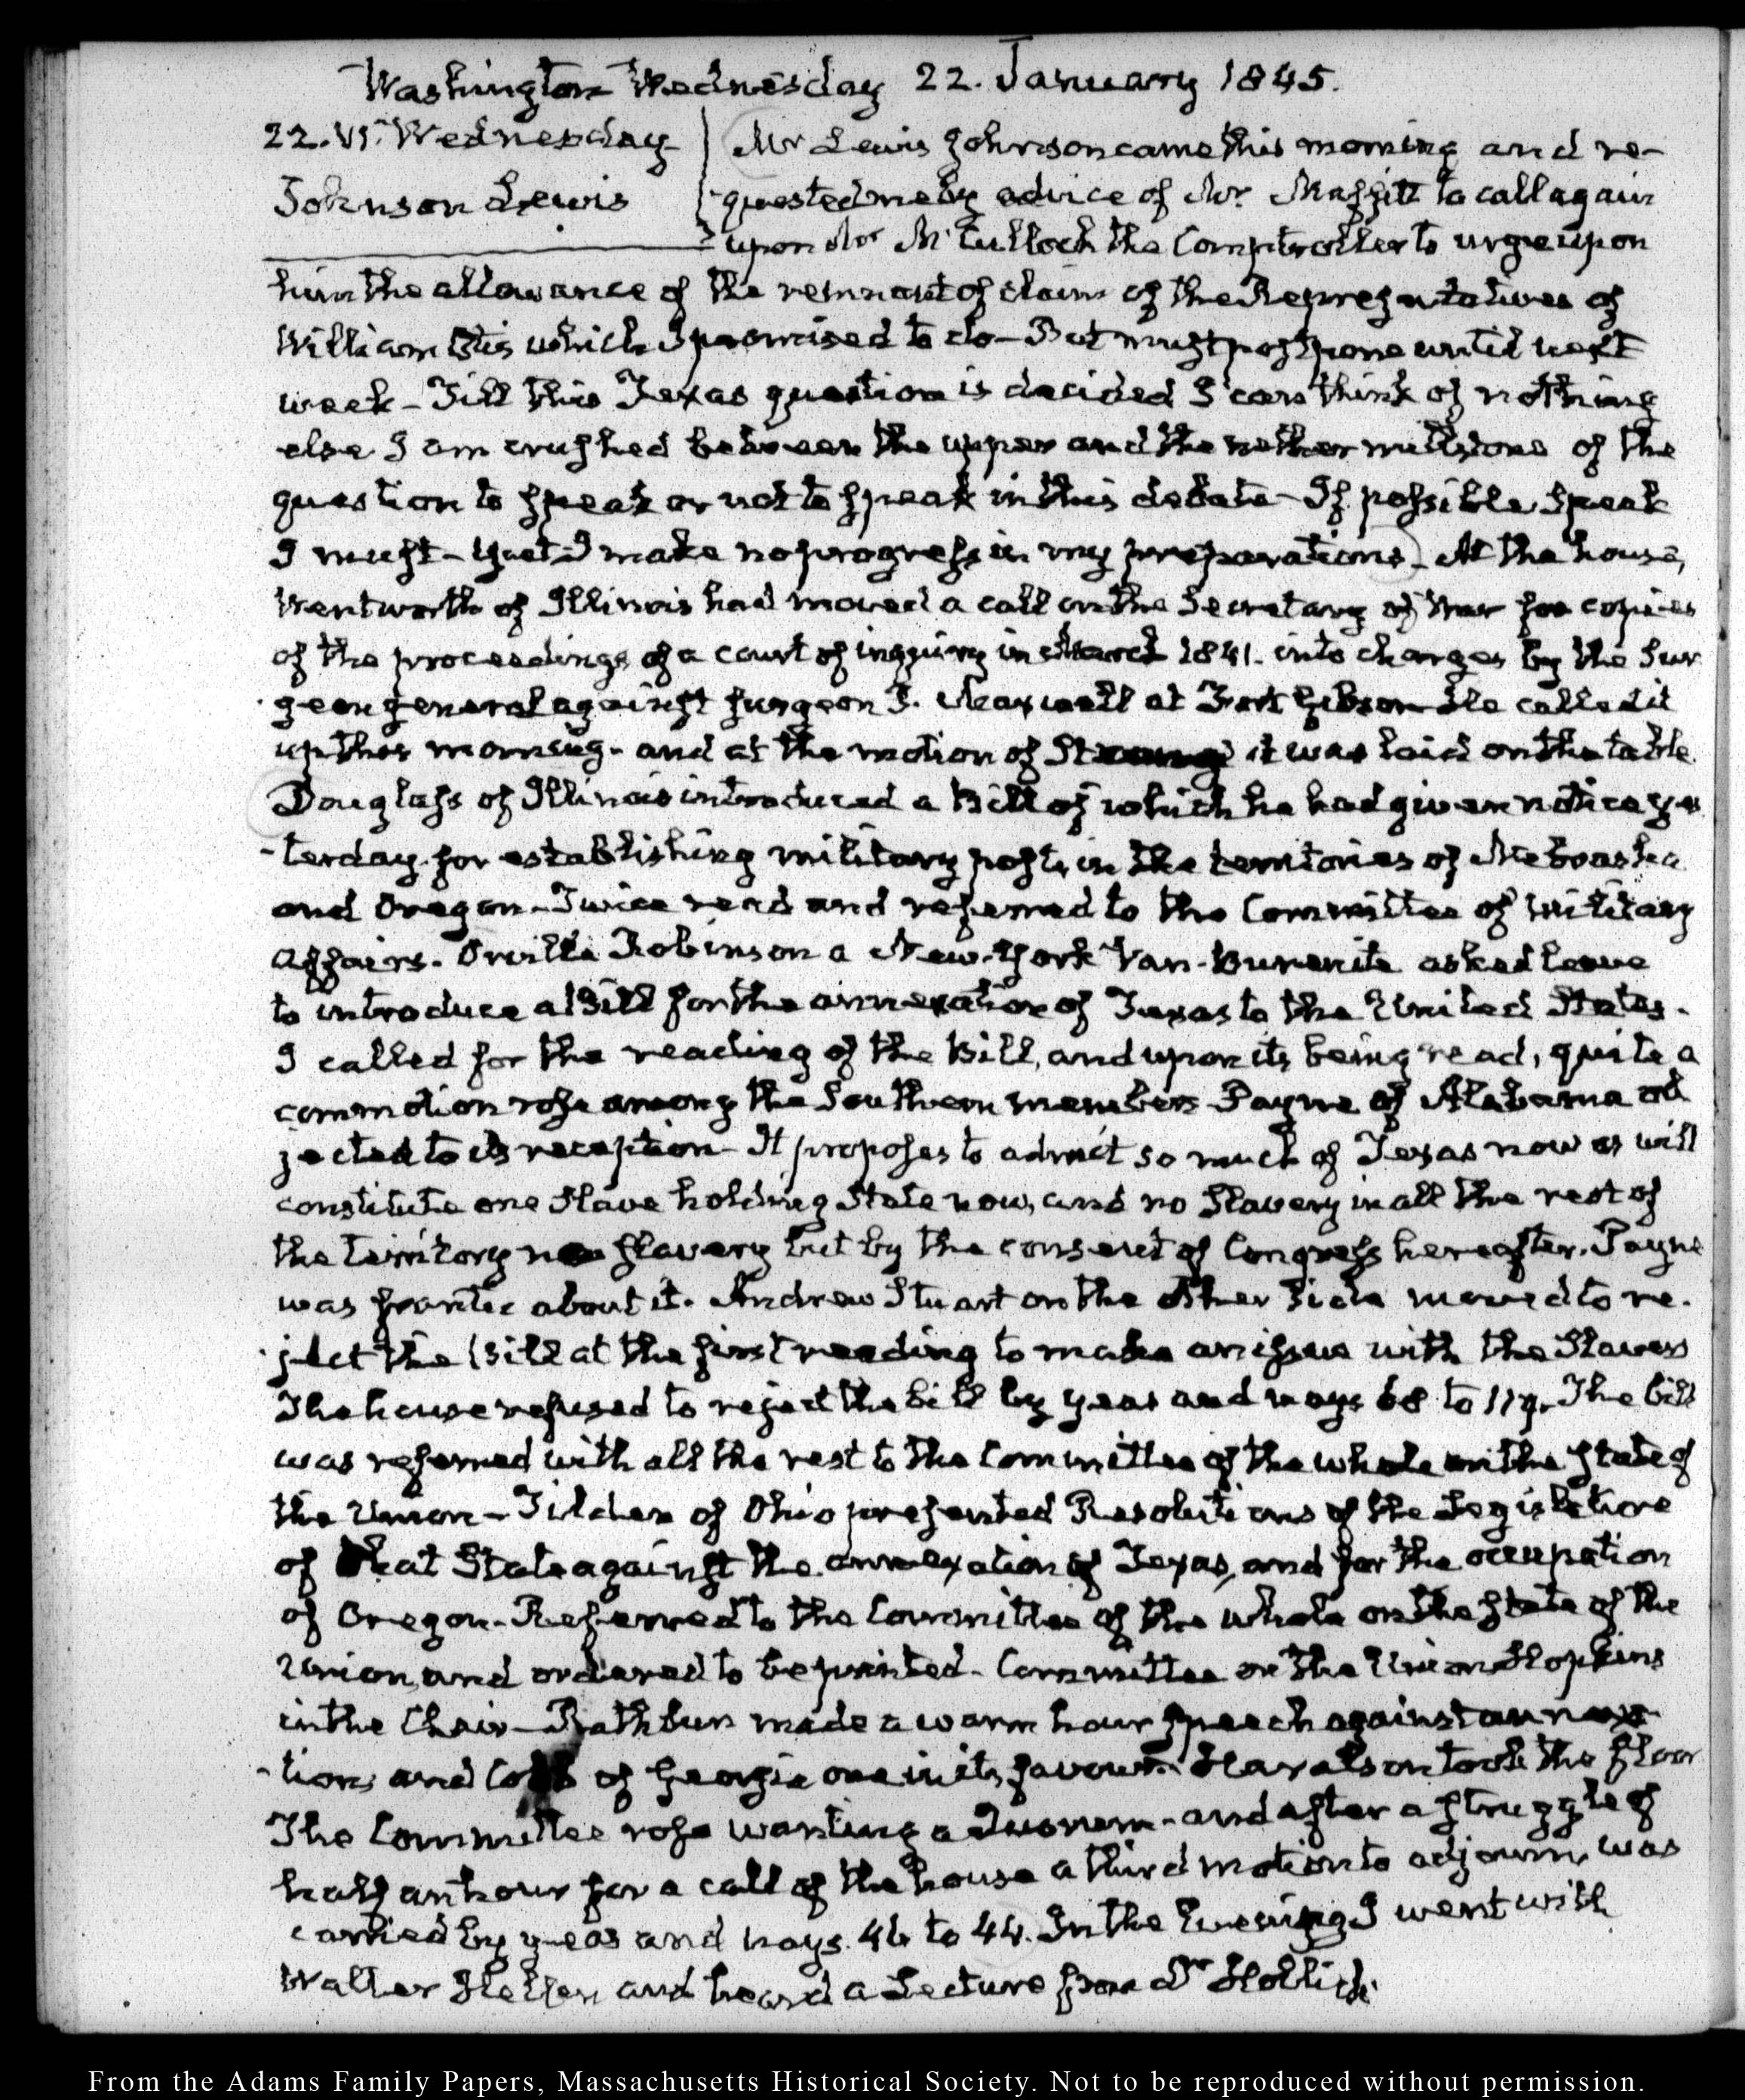 Washington Wednesday 22. January 1845.
22. VI. Wednesday
Johnson Lewis
Mr Lewis Johnson came this morning and re-
quested me by advice of Mr. Maffitt to call again
upon Mr McCulloch the Comptroller to urge upon
him the allowance of the remnant of claim of the Representatives of
William Otis which I promised to do – But must postpone until next
week – Till this Texas question is decided I can think of nothing
else I am crushed between the upper and the nether millstone of the
question to speak or not to speak in this debate – If possible, speak
I must – yet I make no progress in my preparations. At the house,
Wentworth of Illinois had moved a call on the Secretary of War for copies
of the proceedings of a court of inquiry in March 1841. into charges by the Sur
geon general against surgeon J. Maxwell at Fort Gibson He called it
up this morning – and at the motion of it was laid on the table.
Douglass of Illinois introduced a Bill of which he had given notice yes
-terday for establishing military posts, in the territories of Nebraska
and Oregon – Twice read and referred to the Committee of military
affairs. Orville Robinson a New-York Van-Burenite asked leave
to introduce a Bill for the annexation of Texas to the United States.
I called for the reading of the Bill, and upon its being read, quite a
commotion rose among the Southern members Payne of Alabama ob
jected to its reception – It proposes to admit so much of Texas now as will
constitute one Slave holding State now, and no Slavery in all the rest of
the territory no slavery but by the consent of Congress hereafter. Payne
was frantic about it. Andrew Stuart on the other side moved to re.
-ject the Bill at the first reading to make an issue with the Slavers
The house refused to reject the bill by yeas and nays 68 to 119. The bill
was referred with all the rest to the Committee of the whole on the state of
the Union – Tilden of Ohio presented Resolutions of the Legislature
of that State against the annexation of Texas, and for the occupation
of Oregon – Referred to the Committee of the whole on the state of the
Union, and ordered to be printed – Committee on the Union Hopkins
in the Chair – Rathbun made a warm hour speech against annexa-
-tion, and Cobb of Georgia one in its favour. Haralson took the floor
The Committee rose wanting a Quorum – and after a struggle of
half an hour for a call of the house a third motion to adjourn, was
carried by yeas and nays. 46 to 44. In the Evening I went with
Walter Hellen and heard a Lecture from Dr
From the Adams Family Papers, Massachusetts Historical Society. Not to be reproduced without permission.